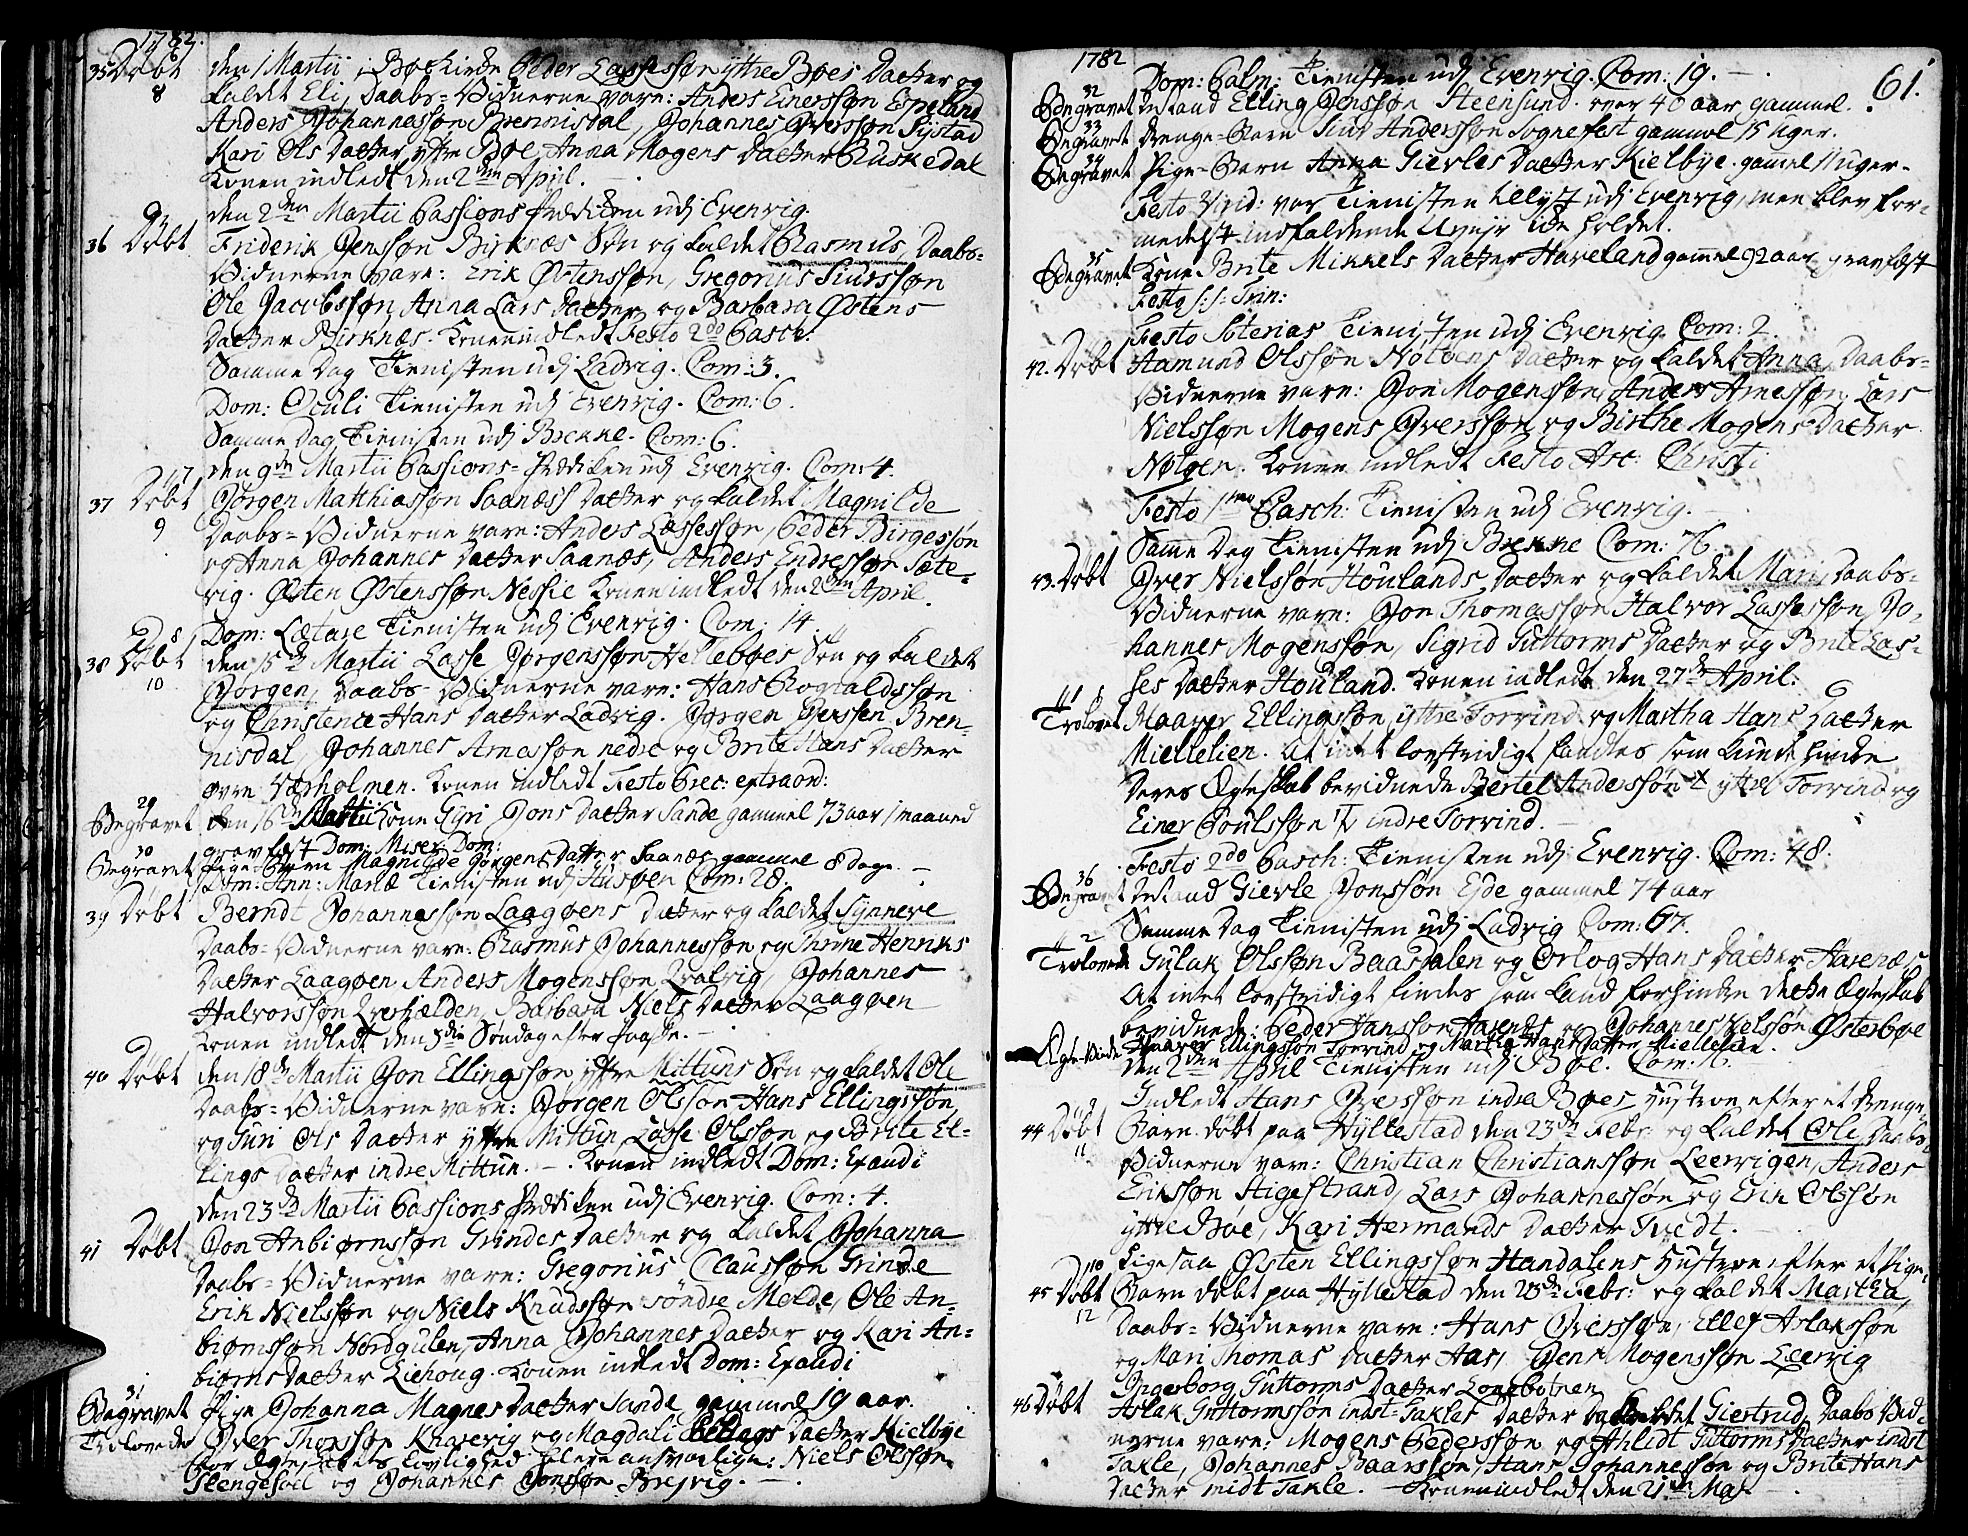 1782.
35 Døbt den 1 Martii i Bøe Kirke Peder Lassessøn yttre Bøes Datter og
8 kaldet Eli, Daabs-Vidnerne vare: Anders Einerssøn Espeland
Anders Johannessøn Brennisdal, Johannes Iverssøn Systad
Kari Ols Datter yttre Bøe, Anna Mogens Datter Ruskedal
Konen indledt den 2den April.
den 2den Martii Passions Prædiken udj Evenvig.
36 Døbt Friderik Jenssøn Birknæs Søn og kaldet Rasmus, Daabs-
Vidnerne vare: Erik Østenssøn, Gregorius Siurssøn
Ole Jacobssøn, Anna Lars Datter og Barbara Østens
Datter Birknæs. Konen indledt Festo 2do Pasch:
Samme Dag Tienisten udj Ladvig. Com: 3.
Dom: Oculi Tienisten udj Evenvig. Com: 6.
Samme Dag Tienisten udj Brekke. Com: 6.
17 den 9de Martii Passions-Prædiken udj Evenvig. Com: 4.
37 Døbt Jørgen Matthiassøn Saanæs's Datter og kaldet Magnilde
9 Daabs-Vidnerne vare: Anders Lassessøn, Peder Birgessøn
og Anna Johannes Datter Saanæs, Anders Endressøn Sæte-
vig. Østen Østenssøn Nessie Konen indledt den 2den April.
8 Dom: Lætare Tienisten udj Evenvig. Com: 14.
38 Døbt den 15de Martii Lasse Jørgenssøn Hellebøes Søn og kaldet
10 Jørgen, Daabs-Vidnerne vare: Hans Rognaldssøn
og Christence Hans Datter Ladvig. Jørgen Jenssen Bren-
nisdal, Johannes Arnessøn nedre og Brite Hans Datter
øvreVærholmen. Konen indledt Festo Prec: extraord:
29
Begravet den 16de Martii Kone Gyri Jons Datter Sande gammel 73 aar 1 maaned
gravfæst Dom: Miser: Dom:
30
Begravet Pige-Barn Magnilde Jørgens Datter Saanæs gammel 8 dage. —
Dom: Ann: Mariæ Tienisten udj Husøen Com: 28.
39 Døbt Berndt Johannessøn Laagøens Datter og kaldet Synneve
Daabs-Vidnerne vare: Rasmus Johannessøn og Thrine Henriks
Datter Laagøen Anders Mogenssøn Qvalvig, Johannes
Halvorssøn Qverhælden, Barbara Niels Datter Laagøen
Konen indledt den 5die Søndag efter Paaske. —
40 Døbt den 18de Martii Jon Ellingssøn yttre Mittuns Søn og kaldet Ole
Daabs-Vidnerne vare: Jørgen Olssøn Hans Ellingssøn
og Guri Ols Datter yttre Mittun Lasse Olssøn og Brite El-
lings Datter indre Mittun. —. Konen indledt Dom: Exaudi
den 23de Martii Passions Prædiken udj Evenvig. Com: 4.
41 Døbt Jon Anbiørnssøn Grindes Datter og kaldet Johanna
Daabs-Vidnerne vare: Gregorius Claussøn Grinde
Erik Nielssøn og Niels Knudssøn søndre Melde, Ole An-
biørnssøn Nordgulen, Anna Johannes Datter og Kari An-
biørns Datter Liehoug. Konen indledt Dom: Exaudi
31
Begravet Pige Johanna Magnes Datter Sande gammel 19 aar.
Trolovede Iver Thorssøn Knarevig og Magdali Ellings Datter Kielbye
for Egteskabets lovlighed blive ansvarlige: Niels Olssøn
Slengesoel og Johannes Jonssøn Brejvig. —
1782
61.
Dom: Palm: Tienisten udj Evenvig. Com: 19. —
32
Begravet Mand Elling Jenssøn Steensund. over 40 aar gammel.
33
Begravet Drenge-Barn Siur Anderssøn Sognefest gammel 15 uger.
34
Begravet Pige-Barn Anna Gievles Datter Kielbye. gammel 11 uger.
Festo Virid: var Tienisten udj Evenvig, men blev for-
medelst indfaldende Uvejr holdet.
35
Begravet Kone Brite Mikkels Datter Haveland gammel 92 aar gravfæst
Festo S:S: Trin:
Festo Soterias Tienisten udj Evenvig Com: 2
42. Døbt Hamund Olssøn Nøtvens Datter og kaldet Anna, Daabs-
Vidnerne vare: Jon Mogenssøn, Anders Arnessøn, Lars
Nielssøn Mogens Iverssøn og Birthe Mogens Datter
Nøtven. Konen indledt Festo Asc: Christi
Festo 1mo Pasch: Tienisten udj Evenvig. —
Samme Dag Tienisten udj Brekke Com: 76
43. Døbt Iver Nielssøn Houlands Datter og kaldet Mari, Daabs-
Vidnerne vare: Jon Thomassøn Halvor Lassessøn, Jo-
hannes Mogenssøn, Sigrid Guttorms Datter og Brite Las-
ses Datter Houland. Konen indledt den 27de April:
Trolovet Haaver Ellingssøn, yttre Torvind og Martha Hans Datter
Miellelien. At intet lovstridigt fandtes som kunde hindre
deres Egteskab bevidnede Bertel Anderssøn yttre Torvind og
Einer Poulssøn indre Torvind. —
Festo 2do Pasch: Tienisten udj Evenvig. Com: 48.
36
Begravet Mand Gievle Jonssøn Ejde gammel 74 aar
Samme Dag Tienisten udj Ladvig Com: 67.
2
Trolovede Gulak Olssøn Baasdalen og Orlog Hans Datter Aarenæs
At intet lovstridigt findes som kand forhindre dette Egteskab
bevidnede: Peder Hanssøn Aarenæs og Johannes Nielssøn Østerbøe
Egte-Viede Haaver Ellingssøn Torvind og Martha Hans Datter Miellelien.
den 2den April Tienisten udj Bøe. Com: 10.
Indledt Hans Iverssøn indre Bøes Hustroe efter et Drenge-
44 Døbt Barn døbt paa Hyllestad den 23de Febr: og kaldet Ole, Daabs-
11 Vidnerne vare: Christian Christianssøn Leervigen, Anders
Erikssøn Stigestrand, Lars Johannessøn og Erik Olssøn
yttre Bøe, Kari Hermands Datter Tvedt.
10 Ligesaa Østen Ellingssøn Handalens Hustroe efter et Pige-
45 Døbt Barn døbt paa Hyllestad den 25de Febr: og kaldet Martha,
12 Daabs-Vidnerne vare: Hans Iverssøn, Ellef Aslakssøn
og Mari Thomas Datter Aas, Jens Mogenssøn Leervig
Ingeborg Guttorms Datter Lonebotnen
46 Døbt Aslak Guttormssøn indst-Takles Datter kaldet Giertrud, Daabs-Vid-
nerne vare: Mogens Pederssøn og Ahlidt Guttorms Datter indst
Takle, Johannes Baarssøn, Hans Johannessøn og Brite Hans
Datter midt Takle. — Konen indledt den 21de Maj —